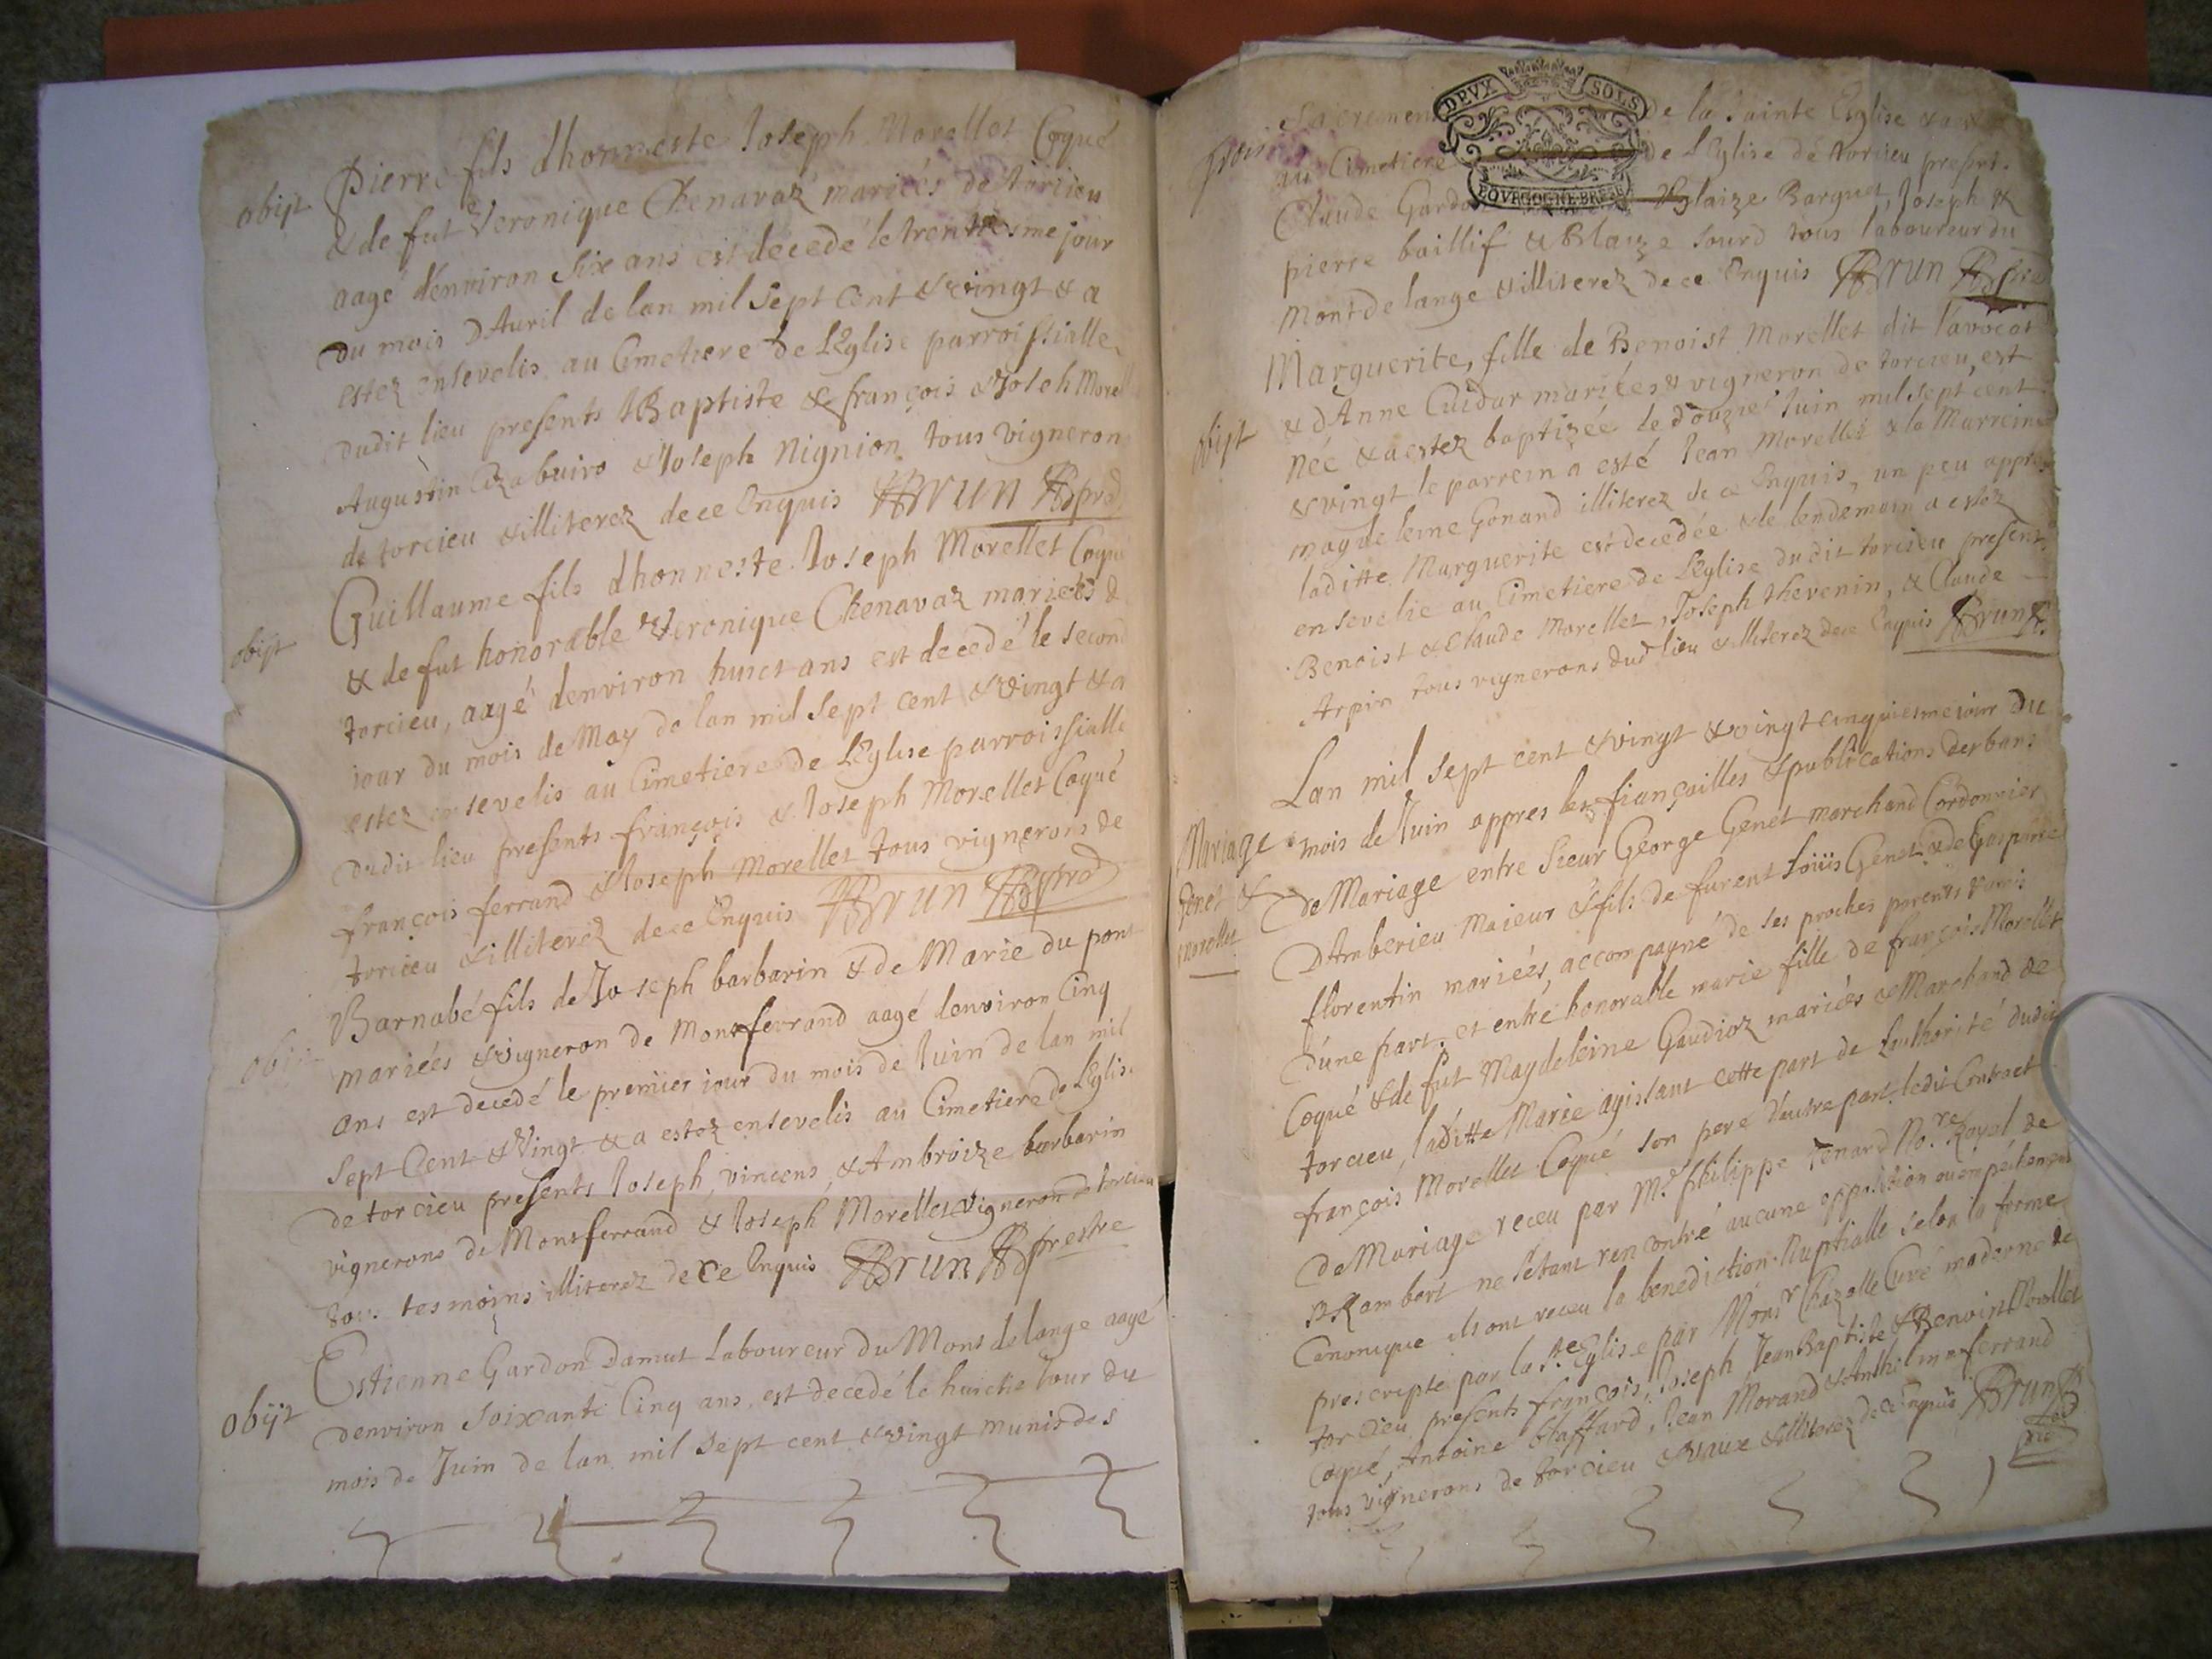 obijt
Pierre fils dhonneste Joseph Morellet Coqué
& de fut Veronique Chenavaz mariées de torcieu
aagé denviron six ans est decedé le trentiesme jour
du mois DAuril de lan mil sept cent & vingt & a
estez ensevelis au Cimetiere de LEglise parroissialle
dudit lieu presents JBaptiste & françois & Joseh Morell
Augustin & Joseph Nignion tous vigneron
de torcieu & illiterez de ce Enquis Brun
obijt
Guillaume fils dhonneste Joseph Morellet Coqué
& de fut honorable Veronique Chenavaz mariees d
torcieu, aagé denviron huict ans est decedé le second
iour du mois de May de lan mil sept cent & vingt & a
estez ensevelis au Cimetiere de LEglise parroissialle
dudit lieu presents françois & Joseph Morellet Coqué
françois ferrand & Joseph Morellet tous vignerons de
torcieu & illiterez de ce Enquis Brun
Barnabé fils de Joseph barbarin & de Marie du pont
mariées & vigneron de Montferrand aagé denviron Cinq
ans est decedé le premier iour du mois de Juin de lan mil
sept Cent & Vingt & a estez ensevelis au Cimetiere de LEglise
de torcieu presents Joseph, vincens, & Ambroize barbarin
vignerons de Montferrand & Joseph Morellet vigneron de torcieu
tous tesmoins illiterez de ce Enquis Brun prestre
obijt
Estienne Gardon Damut Laboureur du Mont delange aagé
denviron soixante Cinq ans, est decedé le huictie iour du
mois de Juin de lan mil sept cent & vingt munis des
Sacrement de la Sainte Eglise
au Cimetiere de LEglise de torcieu presents
DEVX SOLS
BOVRGOGNE BRESSE
Claude Gardon Blaize Barquet, Joseph &
pierre baillif & Blaize sourd tous laboureur du
Mont de lange & illiterez de ce Enquis Brun
obijt
Marguerite, fille de Benoist Morellet dit l'avocat
& d'Anne Cuidar mariées & vigneron de torcieu, est
née & a estez baptizée le douzie Juin mil sept cent
& vingt le parrein a esté Jean Morellet & la Marreine
magdeleine Gonand illiterez de ce Enquis, un peu appres
laditte Marguerite est decedée & le lendemain a estez
ensevelie au Cimetiere de LEglise dudit torcieu presents
Benoist & Claude Morellet, Joseph thevenin, & Claude
Arpin tous vignerons dud lieu & illiterez de ce Enquis Brun
Lan mil sept cent & vingt & vingt cinquiesme iour du
Mariage
mois de Juin appres les fiançailles & publications des bans
de Mariage entre Sieur George Genet marchand Cordonnier
Genet &
DAmberieu Maieur & fils de furent Loüis Genet & de Gasparde
morellet
florentin mariées, accompagné de ses proches parents & amis
d'une part, et entre honorable marie fille de françois Morellet
Coqué & de fut Magdeleine Gaudioz mariées & Marchand de
torcieu, laditte Marie agissant cette part de Lauthorité dudit
françois Morellet Coqué son pere d'autre part, ledit Contract
de Mariage receu par Mr Philippe tenard Nore Royal de
St Rambert ne sétant rencontré aucune opposition ou
Canonique ils ont receu la benediction Nuptialle selon la forme
prescripte par la Ste Eglise par Monsr Chazelle Curé moderne de
torcieu, presents françois, Joseph, Jean Baptiste, & Benoist Morellet
Coqué, Antoine Staffard, Jean Morand & Anthelme ferrand
tous vignerons de torcieu & Vaux & illiterez de ce Enquis Brun